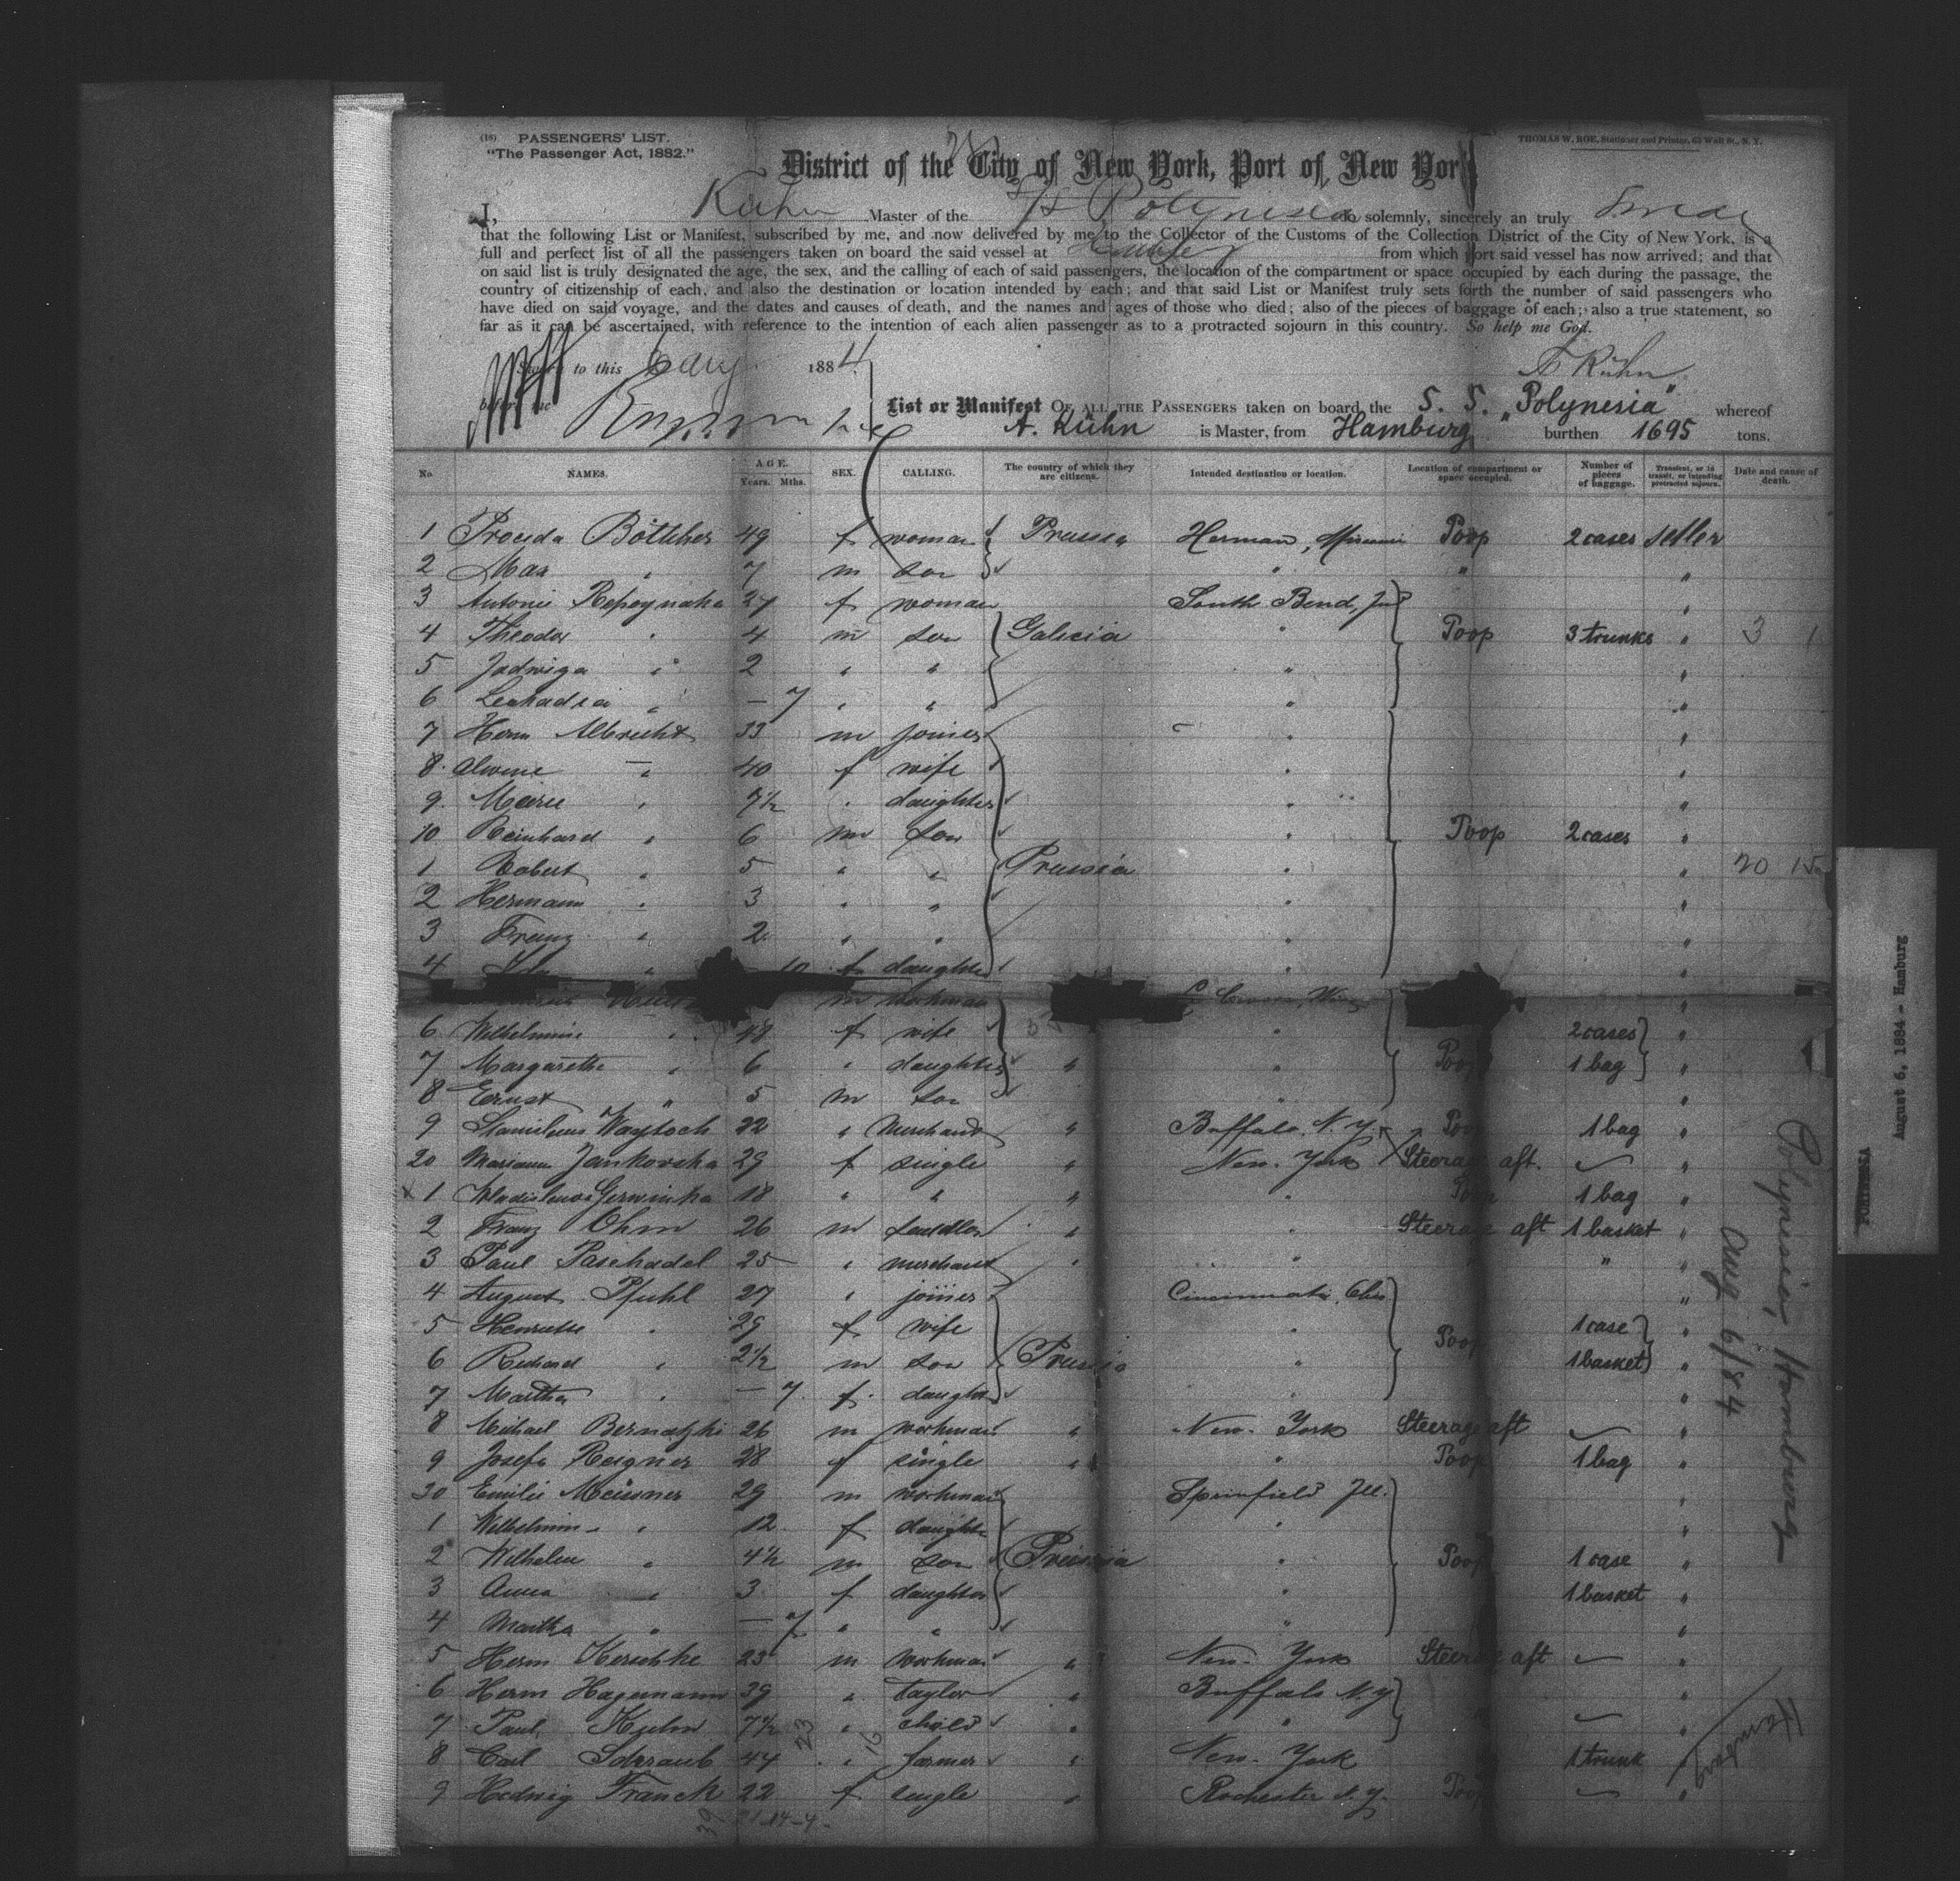 (18) PASSENGERS' LIST.
"The Passenger Act, 1882."
THOMAS W. ROE, Stationer and Printer, 63 Wall St., N. Y.
District of the City of New York, Port of New Yor
I, Kühn Master of the S/S Polynesia do solemnly, sincerely an truly Swear
that the following List or Manifest, subscribed by me, and now delivered by me to the Collector of the Customs of the Collection District of the City of New York, is a
full and perfect list of all the passengers taken on board the said vessel at Hamburg from which port said vessel has now arrived; and that
on said list is truly designated the age, the sex, and the calling of each of said passengers, the location of the compartment or space occupied by each during the passage, the
country of citizenship of each, and also the destination or location intended by each; and that said List or Manifest truly sets forth the number of said passengers who
have died on said voyage, and the dates and causes of death, and the names and ages of those who died; also of the pieces of baggage of each; also a true statement, so
far as it can be ascertained, with reference to the intention of each alien passenger as to a protracted sojourn in this country. So help me God.
to this 6 Aug 1884
A Kühn
List or Manifest OF ALL THE PASSENGERS taken on board the S. S. "Polynesia" whereof
A. Kühn is Master, from Hamburg burthen 1695 tons.
No. NAMES. AGE. Years. Mths. SEX. CALLING. The country of which they are citizens. Intended destination or location. Location of compartment or space occupied. Number of pieces of baggage. Transient, or in transit, or intending protracted sojourn. Date and cause of death.
1 Böttcher 49 f woman Prussia Herman, Missouri Poop 2 cases settler
2 Max " 7 m son " " "
3 Antonie 27 f woman South Bend, Ind "
4 Theodor " 4 m son Galicia " Poop 3 trunks " 3 1
5 Jadwiga " 2 " " " "
6 Leokadia " — 7 " " " "
7 Herm Albrecht 33 m joiner " "
8 Alwine " 40 f wife " "
9 Marie " 7½ " daughter " "
10 Reinhard " 6 m son " Poop 2 cases "
1 Robert " 5 " " Prussia " " 20 15
2 Hermann " 3 " " " "
3 Franz " 2 " " " "
4 " 10 f daughter " "
m workman "
6 Wilhelmine " 48 f wife " 2 cases "
7 Margarethe " 6 " daughter " " Poop 1 bag "
8 Ernst " 5 m son " "
9 Stanislaus Waytoch 22 " Merchand " Buffalo, N.Y. Poop 1 bag "
20 Marianna Jankovska 29 f single " New-York Steerage aft. "
1 18 " " " " 1 bag "
2 Franz Ohm 26 m " " Steerage aft 1 basket "
3 Paul Paschadel 25 " merchant " " " "
4 August Pfuhl 27 " joiner Cincinnati, Ohio "
5 Henriette " 29 f wife " Poop 1 case "
6 Richard " 2½ m son Prussia " 1 basket "
7 Martha " — 7 f daughter " "
8 Michael Bernatzki 26 m workman " New-York Steerage aft "
9 Josefa Reigner 28 f single " " Poop 1 bag "
30 Emilie Meissner 29 m workman Sprinfield Ill. "
1 Wilhelmine " 12 f daughter " "
2 Wilhelm " 4½ m son Prussia " Poop 1 case "
3 Anna " 3 f daughter " 1 basket "
4 Martha " — 7 " " " "
5 Herm 23 m workman " New-York Steerage aft "
6 Herm Hagemann 39 " Taylor " Buffalo N.Y "
7 Paul Kuhn 7½ " child " " "
8 Carl 44 " farmer " New-York 1 trunk "
9 Hedwig Franck 22 f single " Rochester N.Y. Poop "
23
16
39
Polynesia, Hamburg
Aug 6/84
Hamburg
POLYNESIA
August 6, 1884 - Hamburg